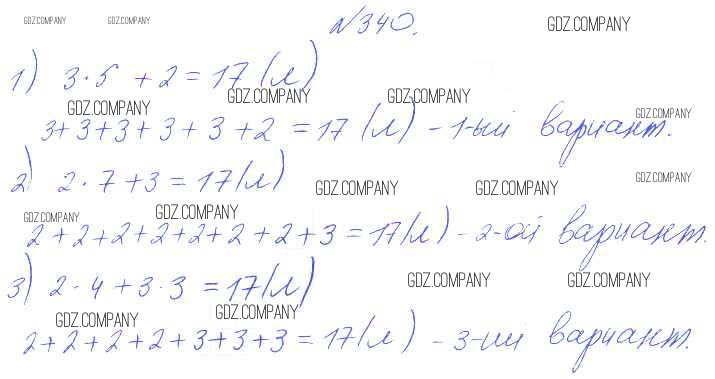 GDZ.COMPANY GDZ.COMPANY №340. GDZ.COMPANY
1) 3·5 + 2 = 17 (л)
GDZ.COMPANY GDZ.COMPANY GDZ.COMPANY
3+3+3+3+3+2 = 17 (л) - 1-ый вариант. GDZ.COMPANY
2) 2·7+3 = 17(л) GDZ.COMPANY GDZ.COMPANY GDZ.COMPANY
GDZ.COMPANY GDZ.COMPANY
2+2+2+2+2+2+2+3 = 17(л) - 2-ой вариант.
3) 2·4+3·3 = 17(л) GDZ.COMPANY GDZ.COMPANY
GDZ.COMPANY GDZ.COMPANY
2+2+2+2+3+3+3 = 17(л) - 3-ий вариант.